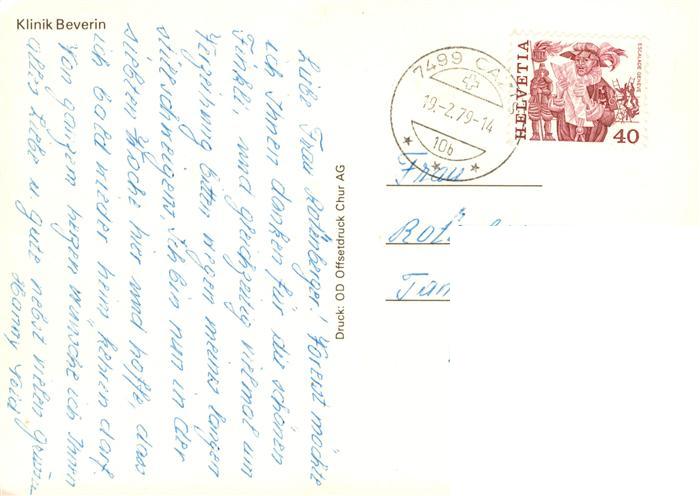 Klinik Beverin
Liebe Frau Rotenberger! Vorerst möchte
ich Ihnen danken für die schönen
Finkli, und gleichzeitig vielmal um
Verzeihung bitten wegen meines langen
stillschweigen. Ich bin nun in der
siebten Woche hier und hoffe, dass
ich bald wieder heim kehren darf.
Von ganzem hezen wünsche ich Ihnen
alles Liebe u. gute nebst vielen grüssen
Hanny
Druck: OD Offsetdruck Chur AG
7499 CA
19.-2.79-14
10b
HELVETIA
ESCALADE GENÈVE
40
Frau
Rot
Tan